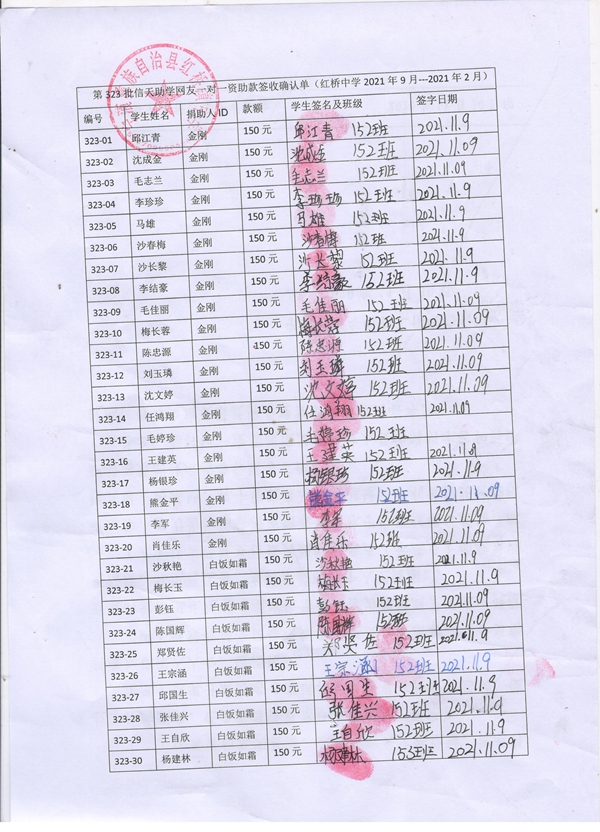 族自治县红桥
第 323 批信天助学网友一对一资助款签收确认单（红桥中学 2021 年 9 月---2021 年 2 月）
编号 学生姓名 捐助人 ID 款额 学生签名及班级 签字日期
323-01 邱江青 金刚 150 元 邱江青 152班 2021.11.9
323-02 沈成金 金刚 150 元 沈成金 152班 2021.11.09
323-03 毛志兰 金刚 150 元 毛志兰 152班 2021.11.09
323-04 李珍珍 金刚 150 元 李珍珍 152班 2021.11.9
323-05 马雄 金刚 150 元 马雄 152班 2021.11.9
323-06 沙春梅 金刚 150 元 沙春梅 152班 2021.11.9
323-07 沙长黎 金刚 150 元 沙长黎 152班 2021.11.9
323-08 李结豪 金刚 150 元 李结豪 152班 2021.11.9
323-09 毛佳丽 金刚 150 元 毛佳丽 152班 2021.11.09
323-10 梅长蓉 金刚 150 元 梅长蓉 152班 2021.11.09
323-11 陈忠源 金刚 150 元 陈忠源 152班 2021.11.09
323-12 刘玉璘 金刚 150 元 刘玉璘 152班 2021.11.09
323-13 沈文婷 金刚 150 元 沈文婷 152班 2021.11.09
323-14 任鸿翔 金刚 150 元 任鸿翔 152班 2021.11.09
323-15 毛婷珍 金刚 150 元 毛婷珍 152班
323-16 王建英 金刚 150 元 王建英 152班 2021.11.9
323-17 杨银珍 金刚 150 元 杨银珍 152班 2021.11.9
323-18 熊金平 金刚 150 元 熊金平 152班 2021.11.09
323-19 李军 金刚 150 元 李军 152班 2021.11.09
323-20 肖佳乐 金刚 150 元 肖佳乐 152班 2021.11.09
323-21 沙秋艳 白饭如霜 150 元 沙秋艳 152班 2021.11.9
323-22 梅长玉 白饭如霜 150 元 梅长玉 152班 2021.11.9
323-23 彭钰 白饭如霜 150 元 彭钰 152班 2021.11.09
323-24 陈国辉 白饭如霜 150 元 陈国辉 152班 2021.11.09
323-25 郑贤佐 白饭如霜 150 元 郑贤佐 152班 2021.11.9
323-26 王宗涵 白饭如霜 150 元 王宗涵 152班 2021.11.9
323-27 邱国生 白饭如霜 150 元 邱国生 152班 2021.11.9
323-28 张佳兴 白饭如霜 150 元 张佳兴 152班 2021.11.9
323-29 王自欣 白饭如霜 150 元 王自欣 152班 2021.11.9
323-30 杨建林 白饭如霜 150 元 杨建林 153班 2021.11.09